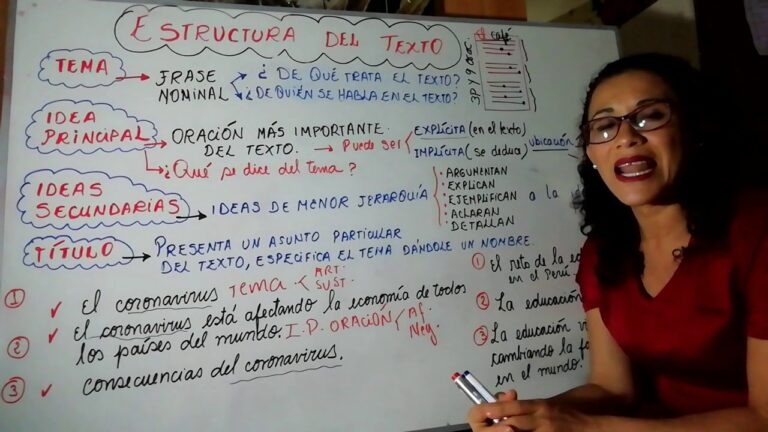 ESTRUCTURA DEL TEXTO
TEMA → FRASE NOMINAL
¿DE QUÉ TRATA EL TEXTO?
¿DE QUIÉN SE HABLA EN EL TEXTO?
3P Y 9 ORAC.
IDEA PRINCIPAL
ORACIÓN MÁS IMPORTANTE
DEL TEXTO. → Puede ser
EXPLÍCITA (en el texto)
IMPLÍCITA (se deduce)
ubicación
¿Qué se dice del tema?
IDEAS SECUNDARIAS
→ IDEAS DE MENOR JERARQUÍA
· ARGUMENTAN
· EXPLICAN
· EJEMPLIFICAN
· ACLARAN
DETALLAN
a la
TÍTULO → PRESENTA UN ASUNTO PARTICULAR
DEL TEXTO, ESPECIFICA EL TEMA DÁNDOLE UN NOMBRE.
① ✓ El coronavirus TEMA < ART. SUST.
② ✓ El coronavirus está afectando la economía de todos
los países del mundo. I.P. ORACIÓN < Af. Neg.
③ ✓ consecuencias del coronavirus.
① El reto de la
en el Perú
② La educación
③ La educación
cambiando la
en el mundo.